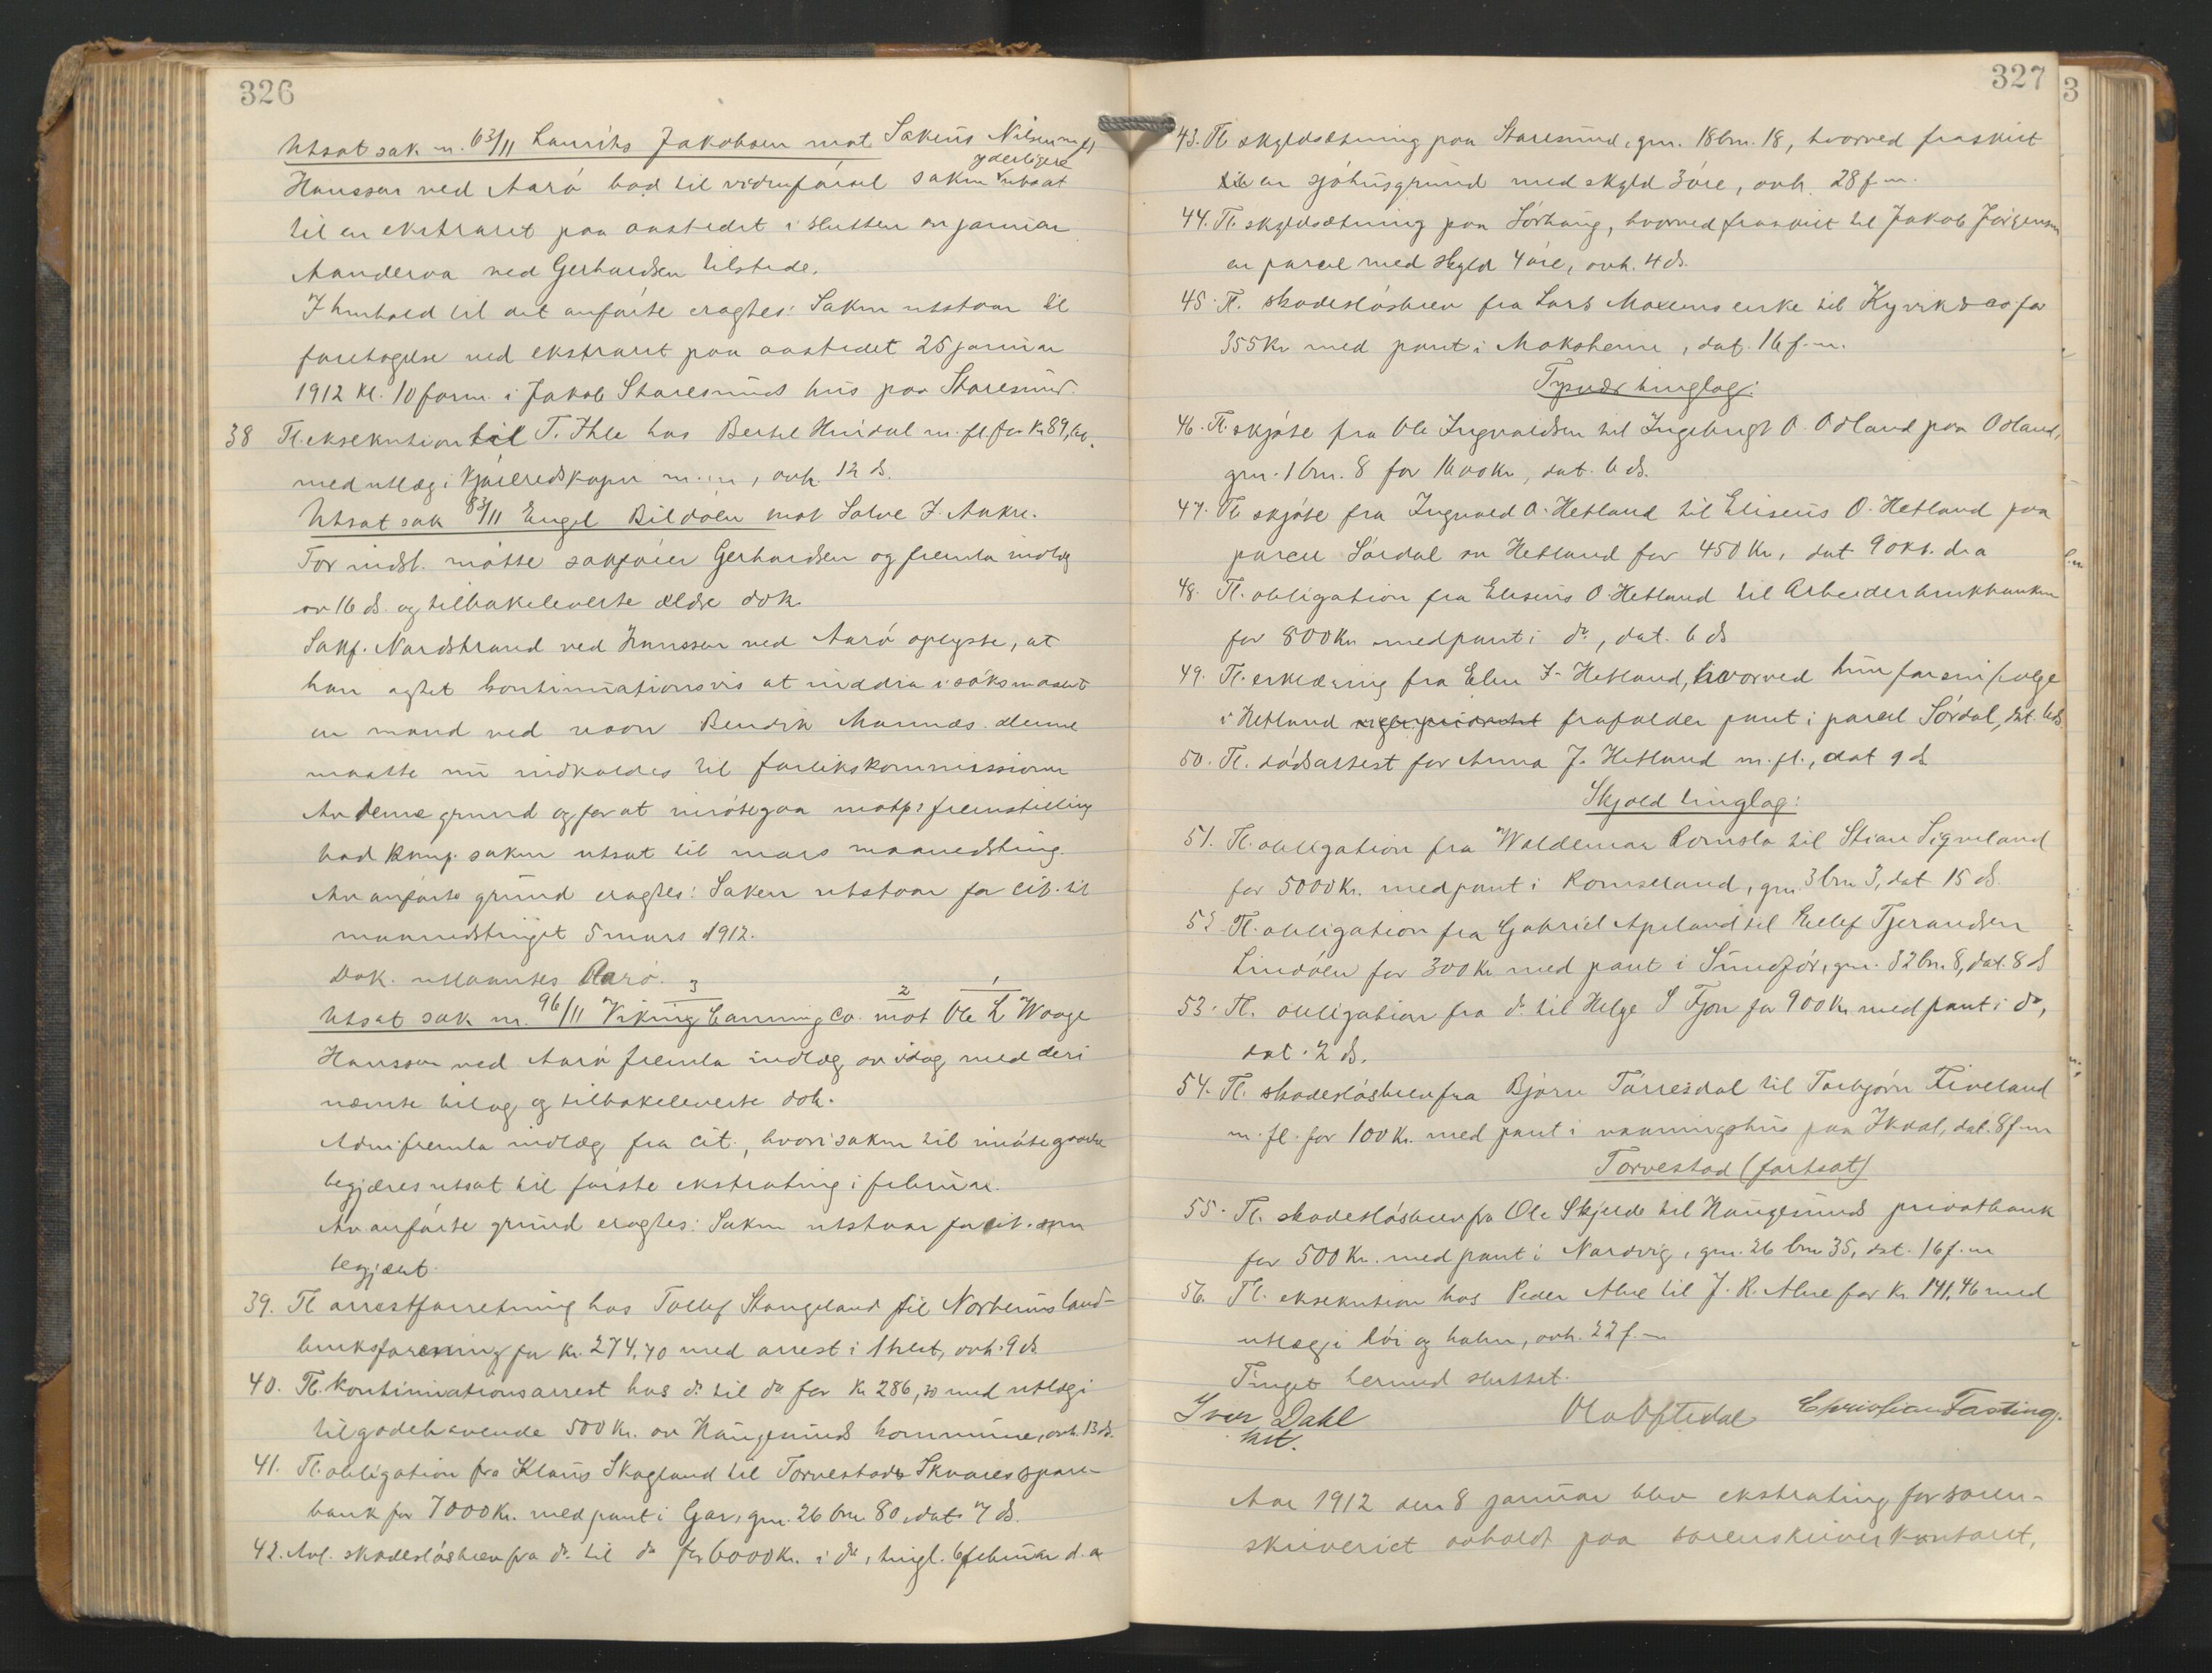 326
Utsat sak nr. 63/11 Laurits Jakobsen mot Sakeus Nilsen m. fl
yderligere
Hanssen ved Aarö bad til vidneförsel saken utsat
til en ekstraret paa aastedet i slutten av januar
Aanderaa ved Gerhardsen tilstede.
I henhold til det anförte eragtes: Saken utstaar til
foretagelse ved ekstraret paa aastedet 25 januar
1912 kl. 10 form. i Jakob Staresinds hus paa Staresund.
38 Tl. eksekution til T. Ihle hos Bertel Huidal m. fl. for Kr 89,
med utlæg i kjöreredskaper m. m, avh. 12 ds.
Utsat sak 83/11 Engel Bildöen mot Salve J. Aakre.
For indst. mötte sakförer Gerhardsen og fremla indlæg
av 16 ds. og tilbakeleverte ældre dok.
Sakf. Nordstrand ved Hanssen ved Aarö oplyste, at
han agtet kontinuationsvis at inddra i söksmaalet
en mand ved navn Bendik Mannes. denne
maatte nu indkaldes til forlikskommissionen
Av denne grund og for at imötegaa motp.s fremstilling
bad komp. saken utsat til mars maanedsting.
Av anförte grund eragtes: Saken utstaar for cit. til
maanedstinget 5 mars 1912.
Dok. utlaantes Aarö.
3 2 1
Utsat sak nr. 96/11 Viking Canning Co. mot Ole L Waage
Hanssen ved Aarö fremla indlæg av idag med deri
nævnte bilag og tilbakeleverte dok.
Adm. fremla indlæg fra cit., hvori saken til imötegaaelse
begjæres utsat til förste ekstrating i februar.
Av anförte grund eragtes: Saken utstaar for cit. som
begjært.
39. Tl arrestforretning hos Tollef Stangeland til Norheims land-
bruksforening for kr. 274,70 med arrest i 1 hest, avh. 9 ds
40. Tl. kontinuationsarrest hos do til do for kr 286,20 med utlæg i
tilgodehavende 500 Kr. av Haugesunds kommune, avh. 13 ds.
41. Tl. obligation fra Klaus Skagland til Torvestads Skaares spare-
bank for 7000 Kr. med pant i Gar, gnr. 26 bnr 80, dat. 7 ds.
42. Avl. skadeslösbrev fra do til do for 6000 Kr. i do, tingl. 6 februar d. a
327
43. Tl skyldsætning paa Staresund, gnr. 18 bnr. 18, hvorved fraskilt
til en sjöhusgrund med skyld 3 öre, avh. 28 f. m.
44. Tl. skyldsætning paa Sörhaug, hvorved fraskilt til Jakob Jörgensen
en parcel med skyld 4 öre, avh. 4 ds.
45. Tl. skadeslösbrev fra Lars Moxeims enke til Kyvik & co for
355 Kr med pant i Moksheim, dat. 16 f. m.
Tysvær tinglag:
46. Tl. skjöte fra Ole Ingvaldsen til Ingebrigt O. Odland paa Odland,
gnr. 1 bnr. 8 for 1600 Kr, dat. 6 ds.
47. Tl skjöte fra Ingvald O. Hetland til Eliseus O. Hetland paa
parcel Sördal av Hetland for 450 Kr., dat 9 okt. d. a
48. Tl. obligation fra Eliseus O Hetland til Arbeiderbrukbanken
for 800 Kr med pant i do, dat. 6 ds
49. Tl. erklæring fra Elen J. Hetland, hvorved hun for sin folge
i Hetland frafalder pant i parcel Sördal, dat. 6 ds.
50. Tl. dödsattest for Anna J. Hetland m. fl., dat 9 ds
Skjold tinglag:
51. Tl. obligation fra Waldemar Romsla til Stian Sigveland
for 5000 Kr. med pant i Romseland, gnr 3 bnr 3, dat 15 ds.
52. Tl. obligation fra Gabriel Apeland til Eellef Tjerandsen
Lindöen for 300 Kr med pant i Sundför, gnr. 82 bnr. 8, dat. 8 ds
53. Tl. obligation fra do til Helge S Fjon for 900 Kr med pant i do,
dat. 2 ds.
54. Tl. skadeslösbrev fra Björn Törresdal til Torbjörn Fiveland
m. fl. for 100 Kr. med pant i vaaningshus paa Ikval, dat. 8 f. m
Torvestad (fortsat)
55. Tl. skadeslösbrev fra Ole Skjelde til Haugesunds privatbank
for 500 Kr. med pant i Nordvig, gnr. 26 bnr 35, dat. 16 f. m
56. Tl. eksekution hos Peder Alne til J. R. Alne for Kr. 141,46 med
utlæg i höi og halm, avh. 22 f. m
Tinget hermed sluttet.
Iver Dahl
kst.
Ola Oftedal Christian Fasting.
Aar 1912 den 8 januar blev ekstrating for soren-
skriveriet avholdt paa sorenskriverkontoret,
3